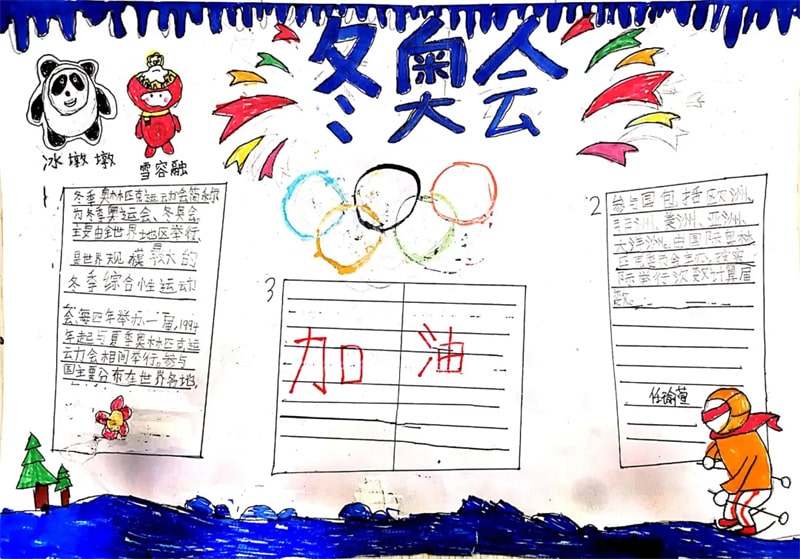 冬奥会
冰墩墩
雪容融
1
冬季奥林匹克运动会简称
为冬季奥运会、冬奥会
主要由全世界地区举行,
是世界规模最大的
冬季综合性运动
会,每四年举办一届,1994
年起与夏季奥林匹克运
动会相间举行。参与
国主要分布在世界各地,
2
参与国包括欧洲、
非洲、美洲、亚洲、
大洋洲。由国际奥林
匹克委员会主办。按实
际举行次数计算届
数。
3
加油
任瑜萱